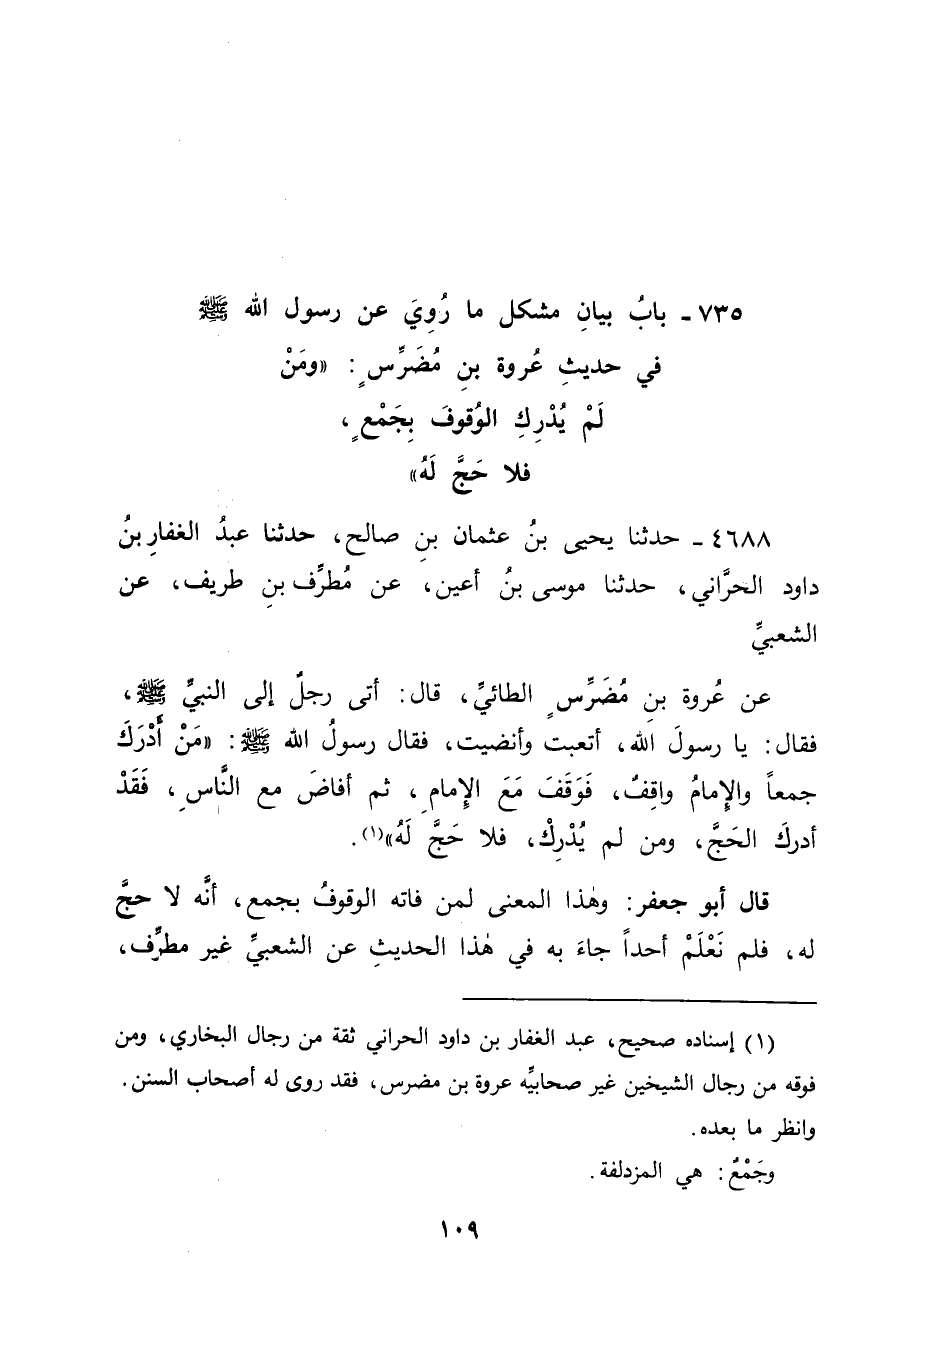 ٧٣٥ ـ بابُ بيانِ مشكل ما رُوِيَ عن رسول الله ﷺ
في حديثِ عُروة بنِ مُضَرِّسٍ: «ومَنْ
لَمْ يُدْرِكِ الوُقوفَ بِجَمْعٍ،
فلا حَجَّ لَهُ»
٤٦٨٨ ـ حدثنا يحيى بنُ عثمان بنِ صالح، حدثنا عبدُ الغفارِ بنُ
داود الحرَّاني، حدثنا موسى بنُ أعين، عن مُطرِّف بنِ طريف، عن
الشعبيِّ
عن عُروة بنِ مُضَرِّسٍ الطائيِّ، قال: أتى رجلٌ إلى النبيِّ ﷺ،
فقال: يا رسولَ الله، أتعبت وأنضيت، فقال رسولُ الله ﷺ: «مَنْ أَدْرَكَ
جمعاً والإِمامُ واقِفٌ، فَوَقَفَ مَعَ الإِمامِ، ثم أفاضَ مع النَّاسِ، فَقَدْ
أدركَ الحَجَّ، ومن لم يُدْرِكْ، فلا حَجَّ لَهُ»(١).
قال أبو جعفر: وهٰذا المعنى لمن فاته الوقوفُ بجمع، أنَّه لا حجَّ
له، فلم نَعْلَمْ أحداً جاءَ به في هٰذا الحديثِ عن الشعبيِّ غير مطرِّف،
(١) إسناده صحيح، عبد الغفار بن داود الحراني ثقة من رجال البخاري، ومن
فوقه من رجال الشيخين غير صحابيِّه عروة بن مضرس، فقد روى له أصحاب السنن.
وانظر ما بعده.
وجَمْعٌ: هي المزدلفة.
١٠٩